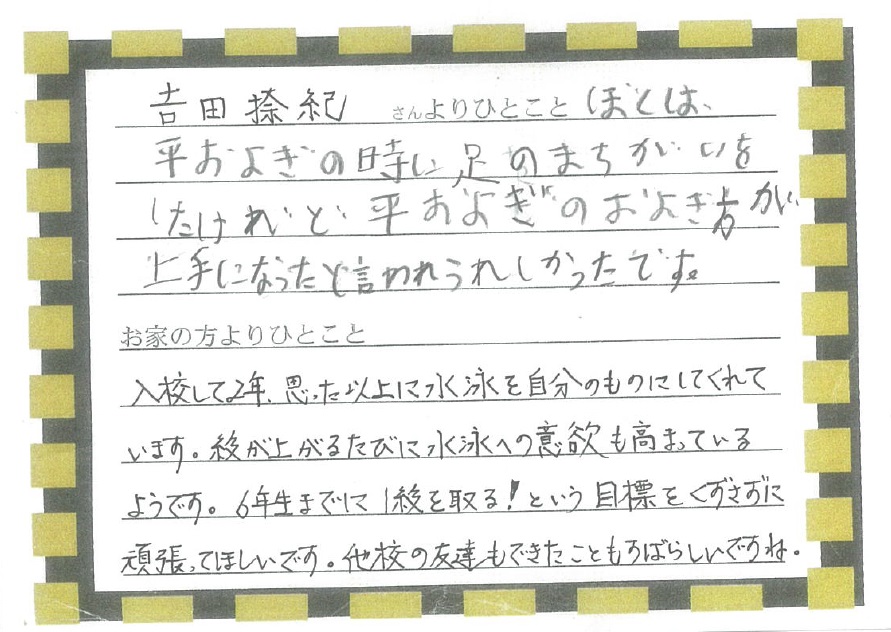 吉田捺紀 さんよりひとこと ぼくは、
平およぎの時に足のまちがいを
したけれど平およぎのおよぎ方が
上手になったと言われうれしかったです。
お家の方よりひとこと
入校して2年、思った以上に水泳を自分のものにしてくれて
います。級が上がるたびに水泳への意欲も高まっている
ようです。6年生までに1級を取る!という目標をくずさずに
頑張ってほしいです。他校の友達もできたこともすばらしいですね。